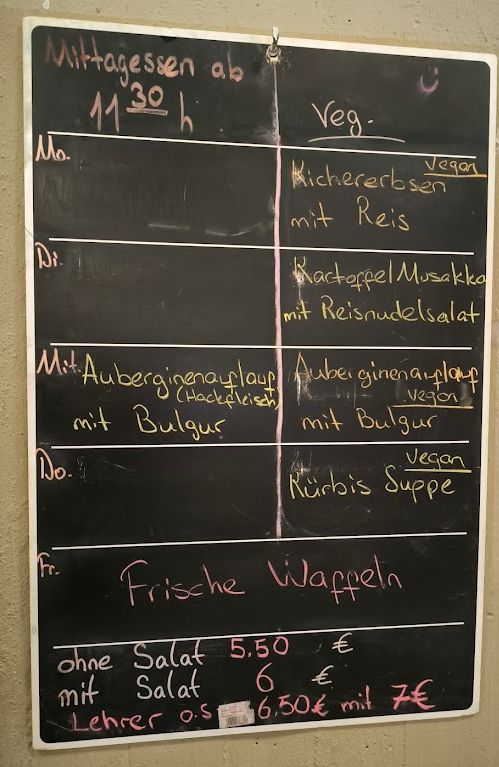 Mittagessen ab
11 30 h
Veg.
Mo.
Vegan
Kichererbsen
mit Reis
Di.
Kartoffel Musakka
mit Reisnudelsalat
Mit.
Auberginenauflauf
(Hackfleisch)
mit Bulgur
Auberginenauflauf
Vegan
mit Bulgur
Do.
Vegan
Kürbis Suppe
Fr.
Frische Waffeln
ohne Salat 5.50 €
mit Salat 6 €
Lehrer o.S 6,50€ mit 7€